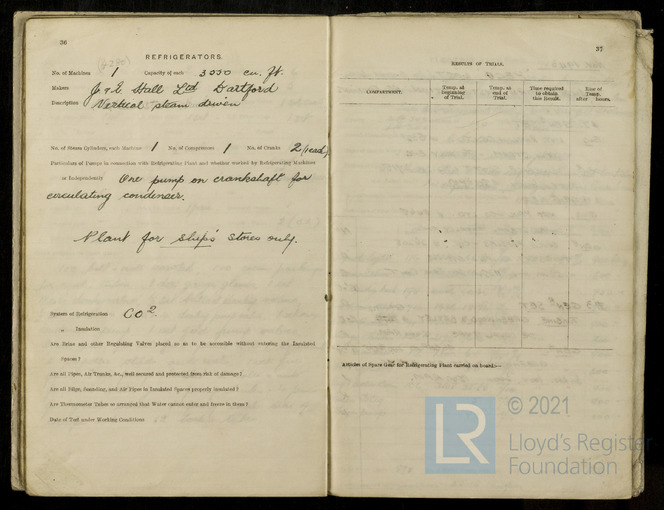 36
REFRIGERATORS.
No. of Machines 1 Capacity of each 3050 cu. ft.
Makers J & E Hall Ltd Dartford
Description Vertical steam driven
No. of Steam Cylinders, each Machine 1 No. of Compressors 1 No. of Cranks 2 (each)
Particulars of Pumps in connection with Refrigerating Plant and whether worked by Refrigerating Machines
or Independently One pump on crankshaft for
circulating condenser.
Plant for ship's stores only.
System of Refrigeration CO2
„ Insulation
Are Brine and other Regulating Valves placed so as to be accessible without entering the Insulated
Spaces?
Are all Pipes, Air Trunks, &c., well secured and protected from risk of damage?
Are all Bilge, Sounding, and Air Pipes in Insulated Spaces properly insulated?
Are Thermometer Tubes so arranged that Water cannot enter and freeze in them?
Date of Test under Working Conditions
37
RESULTS OF TRIALS.
COMPARTMENT.
Temp. at beginning of Trial.
Temp. at end of Trial.
Time required to obtain this Result.
Rise of Temp. after hours.
Articles of Spare Gear for Refrigerating Plant carried on board:—
LR © 2021
Lloyd's Register
Foundation